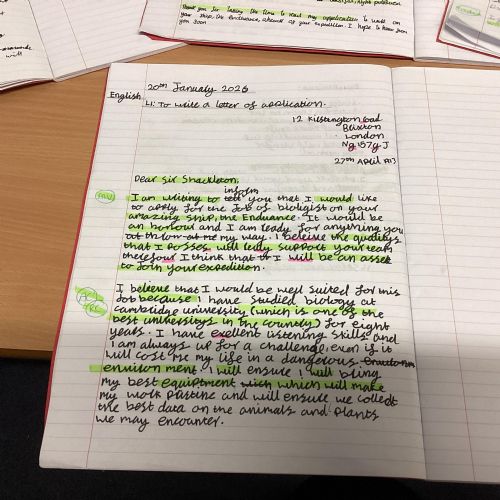 Thank you for taking the time to read my application to work on
your ship, the Endurance, ahead of your expedition. I hope to hear from
you soon
20th January 2026
English
LI: To write a letter of application.
12 Kilstangton Road
Blixton
London
27th April
Dear Sir Shackleton,
inform
I am writing to tell you that I would like
to apply for the Job of biologist on your
amazing ship, the Enduance. It would be
an honour and I am ready for anything you
my way. I beleive the qualitys
that I posses will truly support your team
therefour I think that I will be an asset
to Join your expedition.
I believe that I would be well suited for this
Job because I have studied biology at
Cambridge university (which is one of the
best universitys in the country) for eight
years. I have exellent listening skills and
I am always up for a challenge, even if it
will cost me my life in a dangerous
environ ment. I will ensure I will bring
my best equiptment which will make
my work pristine and will ensure we collect
the best data on the animals and plants
we may encounter.